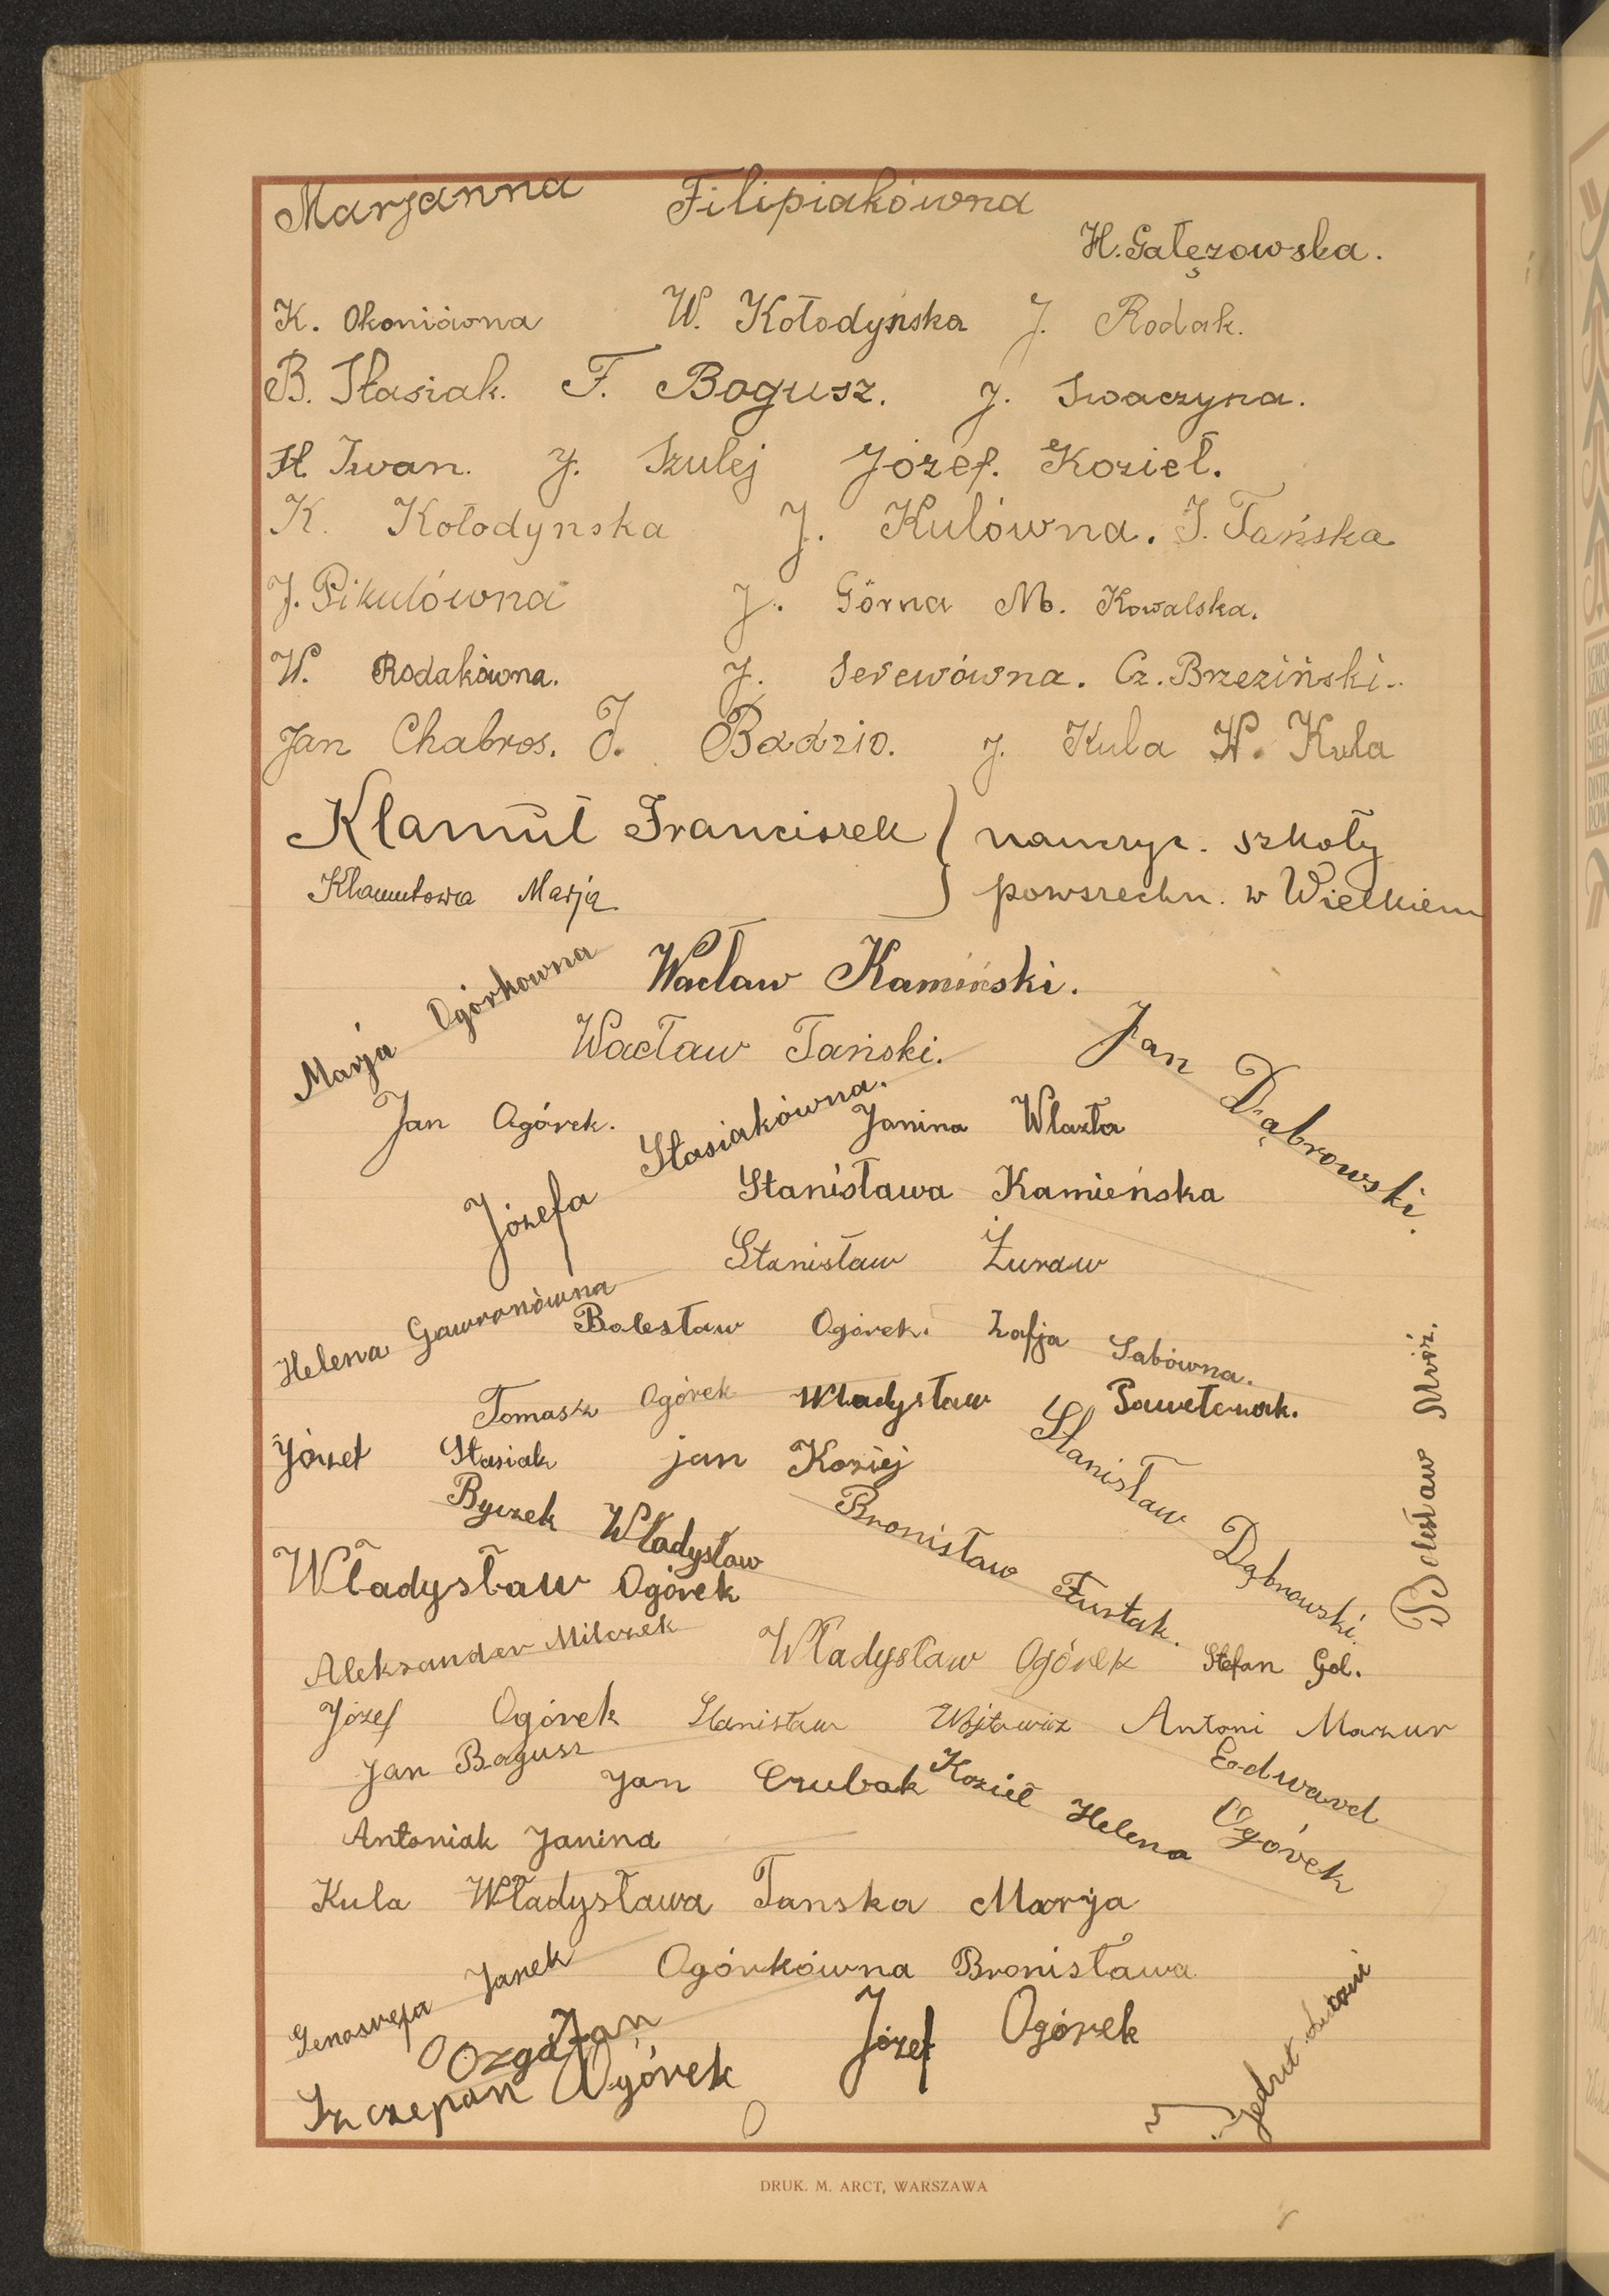 Marjanna Filipiakówna
H. Gałęzowska.
K. Okoniówna W. Kołodyńska J. Rodak.
B. Stasiak. F. Bogusz. J. Swaczyna.
H. Iwan. J. Szulej Józef. Kozieł.
K. Kołodynska J. Kulówna. J. Tańska
J. Pikulówna J. Górna M. Kowalska.
W. Rodakówna. J. Serewówna. Cz. Brzeziński.
Jan Chabros. J. Badzio. J. Kula W. Kula
Kłamut Franciszek } nauczyc. szkoły
Kłamutowa Marja } powszechn. w Wielkiem
Marja Ogórkowna Wacław Kamiński.
Wacław Tański. Jan Dąbrowski.
Jan Ogórek. Józefa Stasiakówna. Janina Wlazła
Stanisława Kamieńska
Stanisław Żuraw
Helena Gawronówna Bolesław Ogórek. Zofja Sabówna.
Tomasz Ogórek Władysław Pawełczak.
Józef Stasiak jan Koziej Stanisław Dąbrowski.
Byczek Władysław Bronisław Fustak. Bolesław Mróz.
Władysław Ogórek
Aleksander Milczek Władysław Ogórek Stefan Gol.
Józef Ogórek Stanisław Wójtowicz Antoni Mazur
Jan Bogusz Jan Czubak Kozieł Helena Edward Ogórek
Antoniak Janina
Kula Władysława Tanska Marja
Genowefa Janek Ogórkówna Bronisława
Ozga Jan Józef Ogórek
Szczepan Ogórek
DRUK. M. ARCT, WARSZAWA